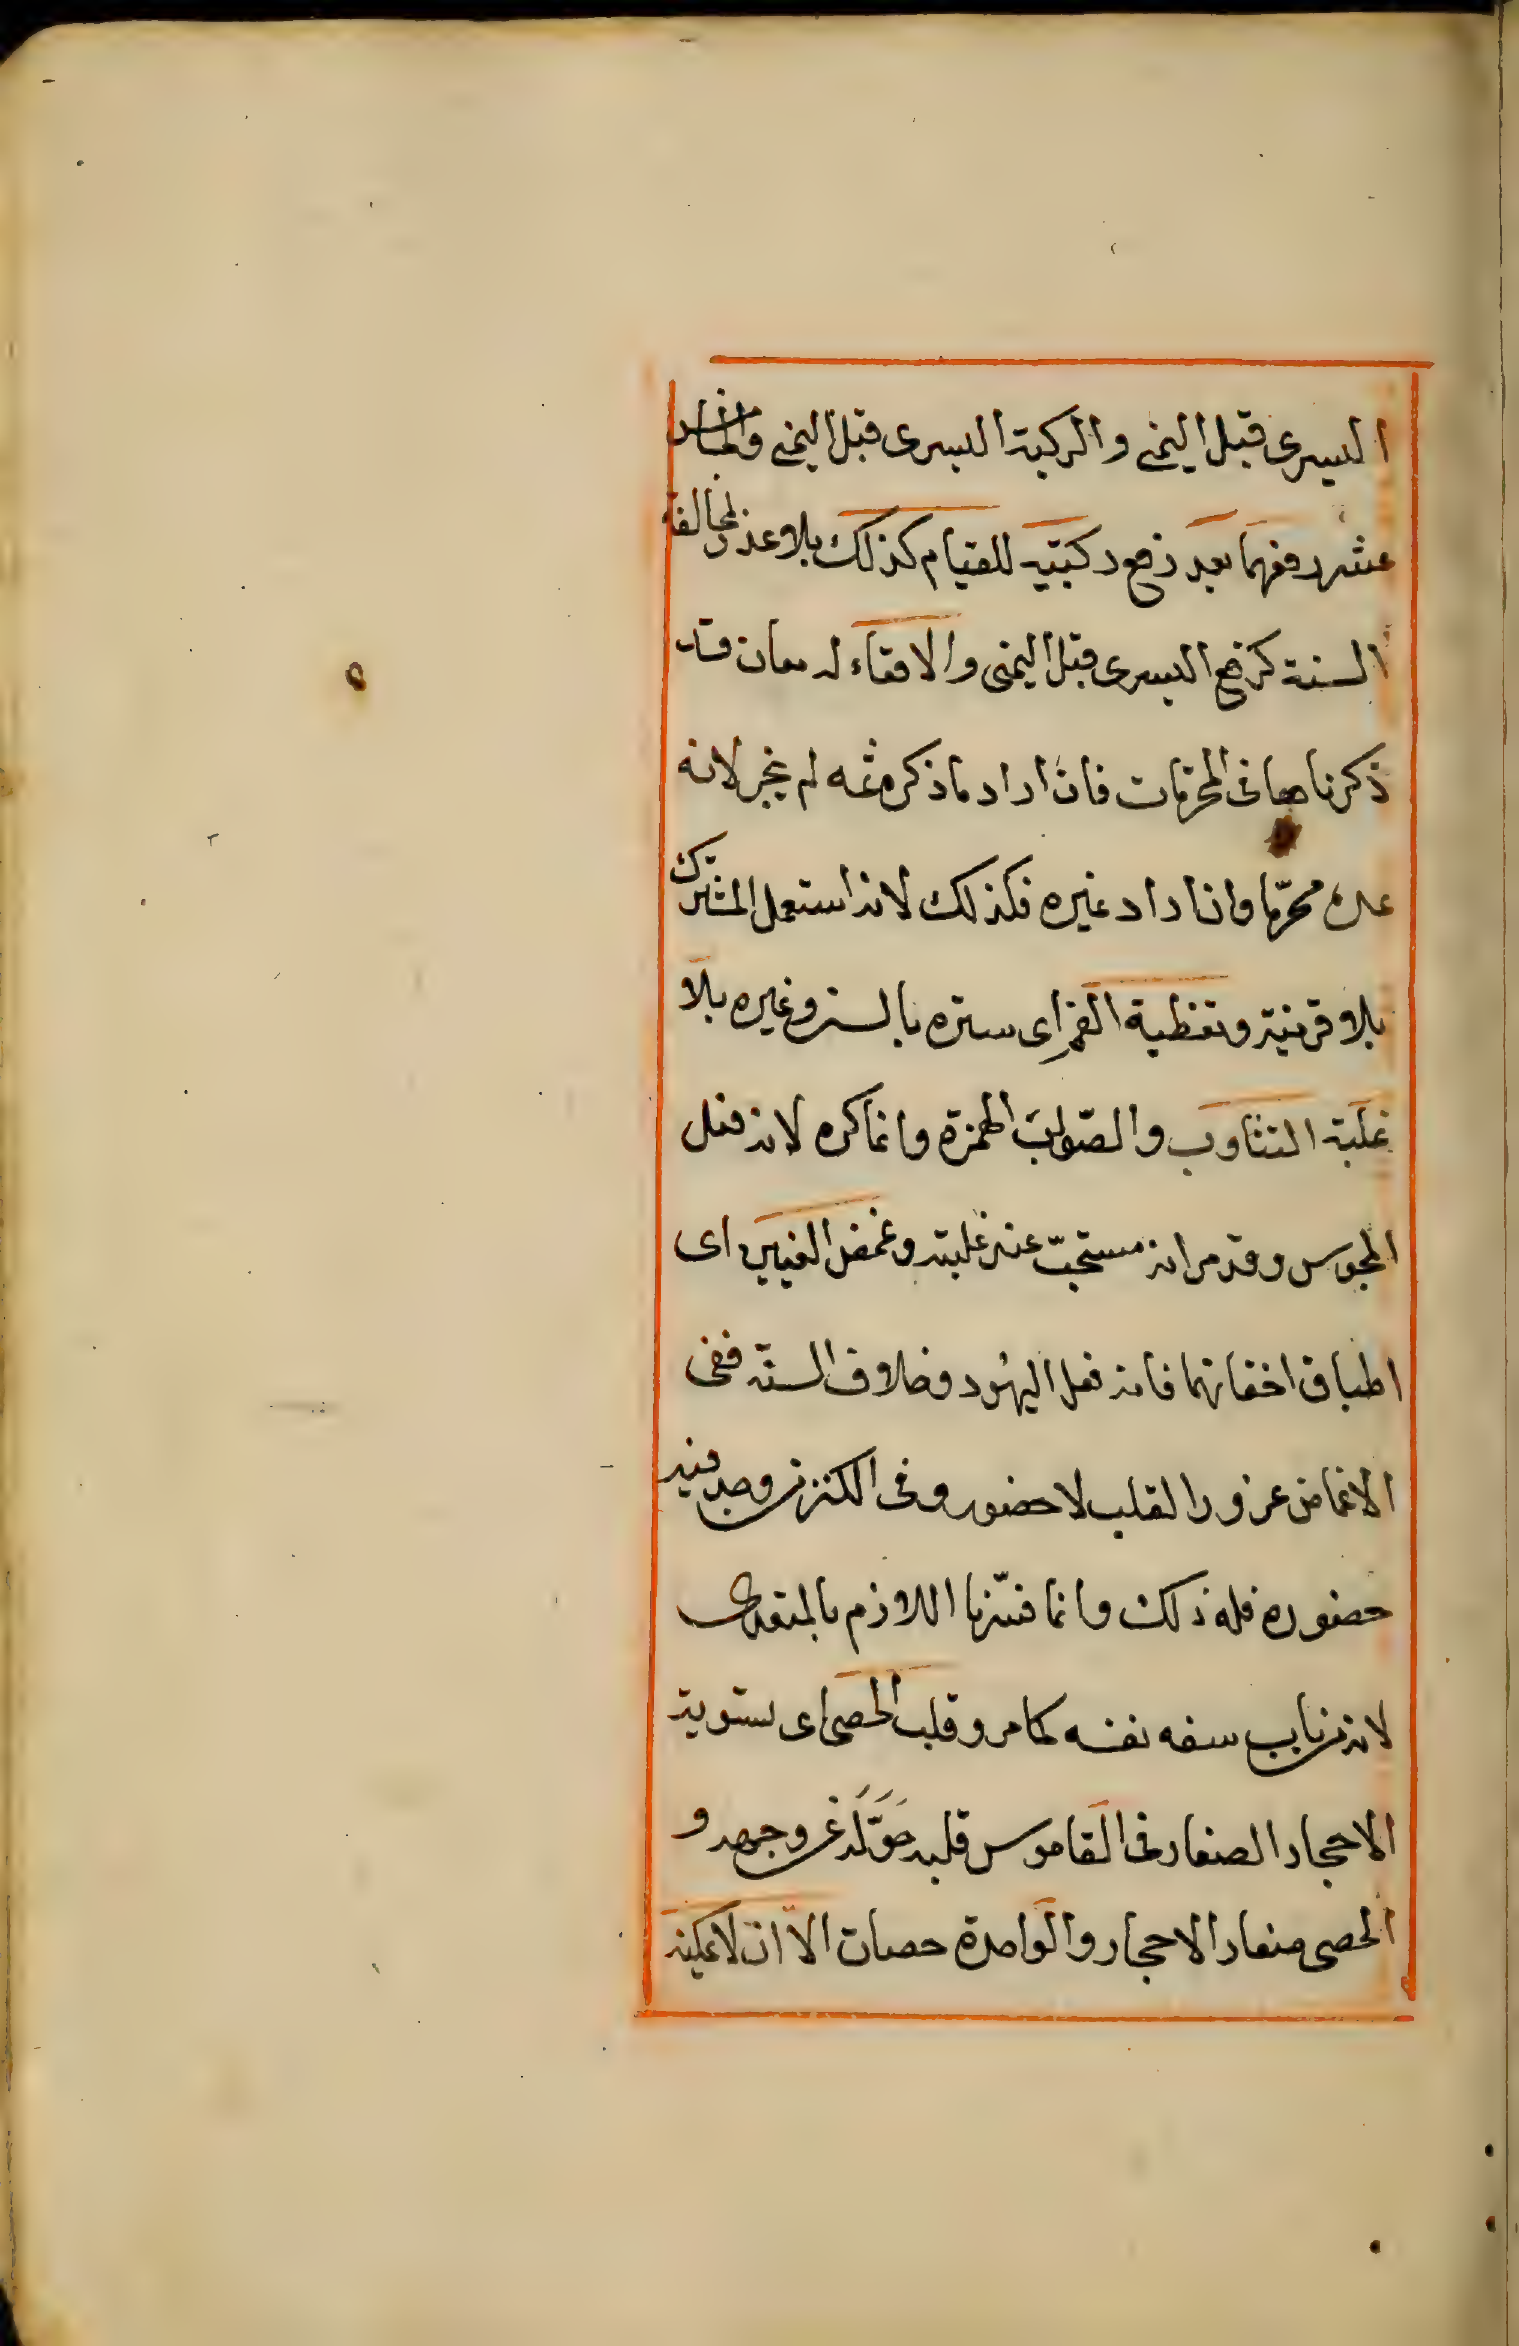 اليسرى قبل اليمنى والركبة اليسرى قبل اليمنى والخامس
عشر رفعهما بعد رفع ركبتيه للقيام كذلك بلا عذر لمخالفة
السنة كرفع اليسرى قبل اليمنى والاقعاء له معان قد
ذكرناها فى المحرمات فان اراد ما ذكره ثمه لم يجز لانه
عده محرّما وان اراد غيره فكذلك لانه استعمل المشترك
بلا قرينة وتغطية الفم اى ستره بالستر وغيره بلا
غلبة التثاوب والصواب الهمزة وانما كره لانه فعل
المجوس وقد مر انه مستحبّ عند غلبته وغمض العينين اى
اطباق اخفانهما فانه فعل اليهُود وخلاف السنّة ففى
الاغماض عزور القلب لا حضور وفى الكنز من وجد فيه
حضوره فله ذلك وانما فسّرنا اللازم بالمتعدى
لانه من باب سفه نفسه كما مر وقلب الحصى اى تسوية
الاحجار الصغار فى القاموس قلبه حَوَّلَه عن وجهه و
الحصى صغار الاحجار والواحدة حصات الاّ ان لا يمكنه